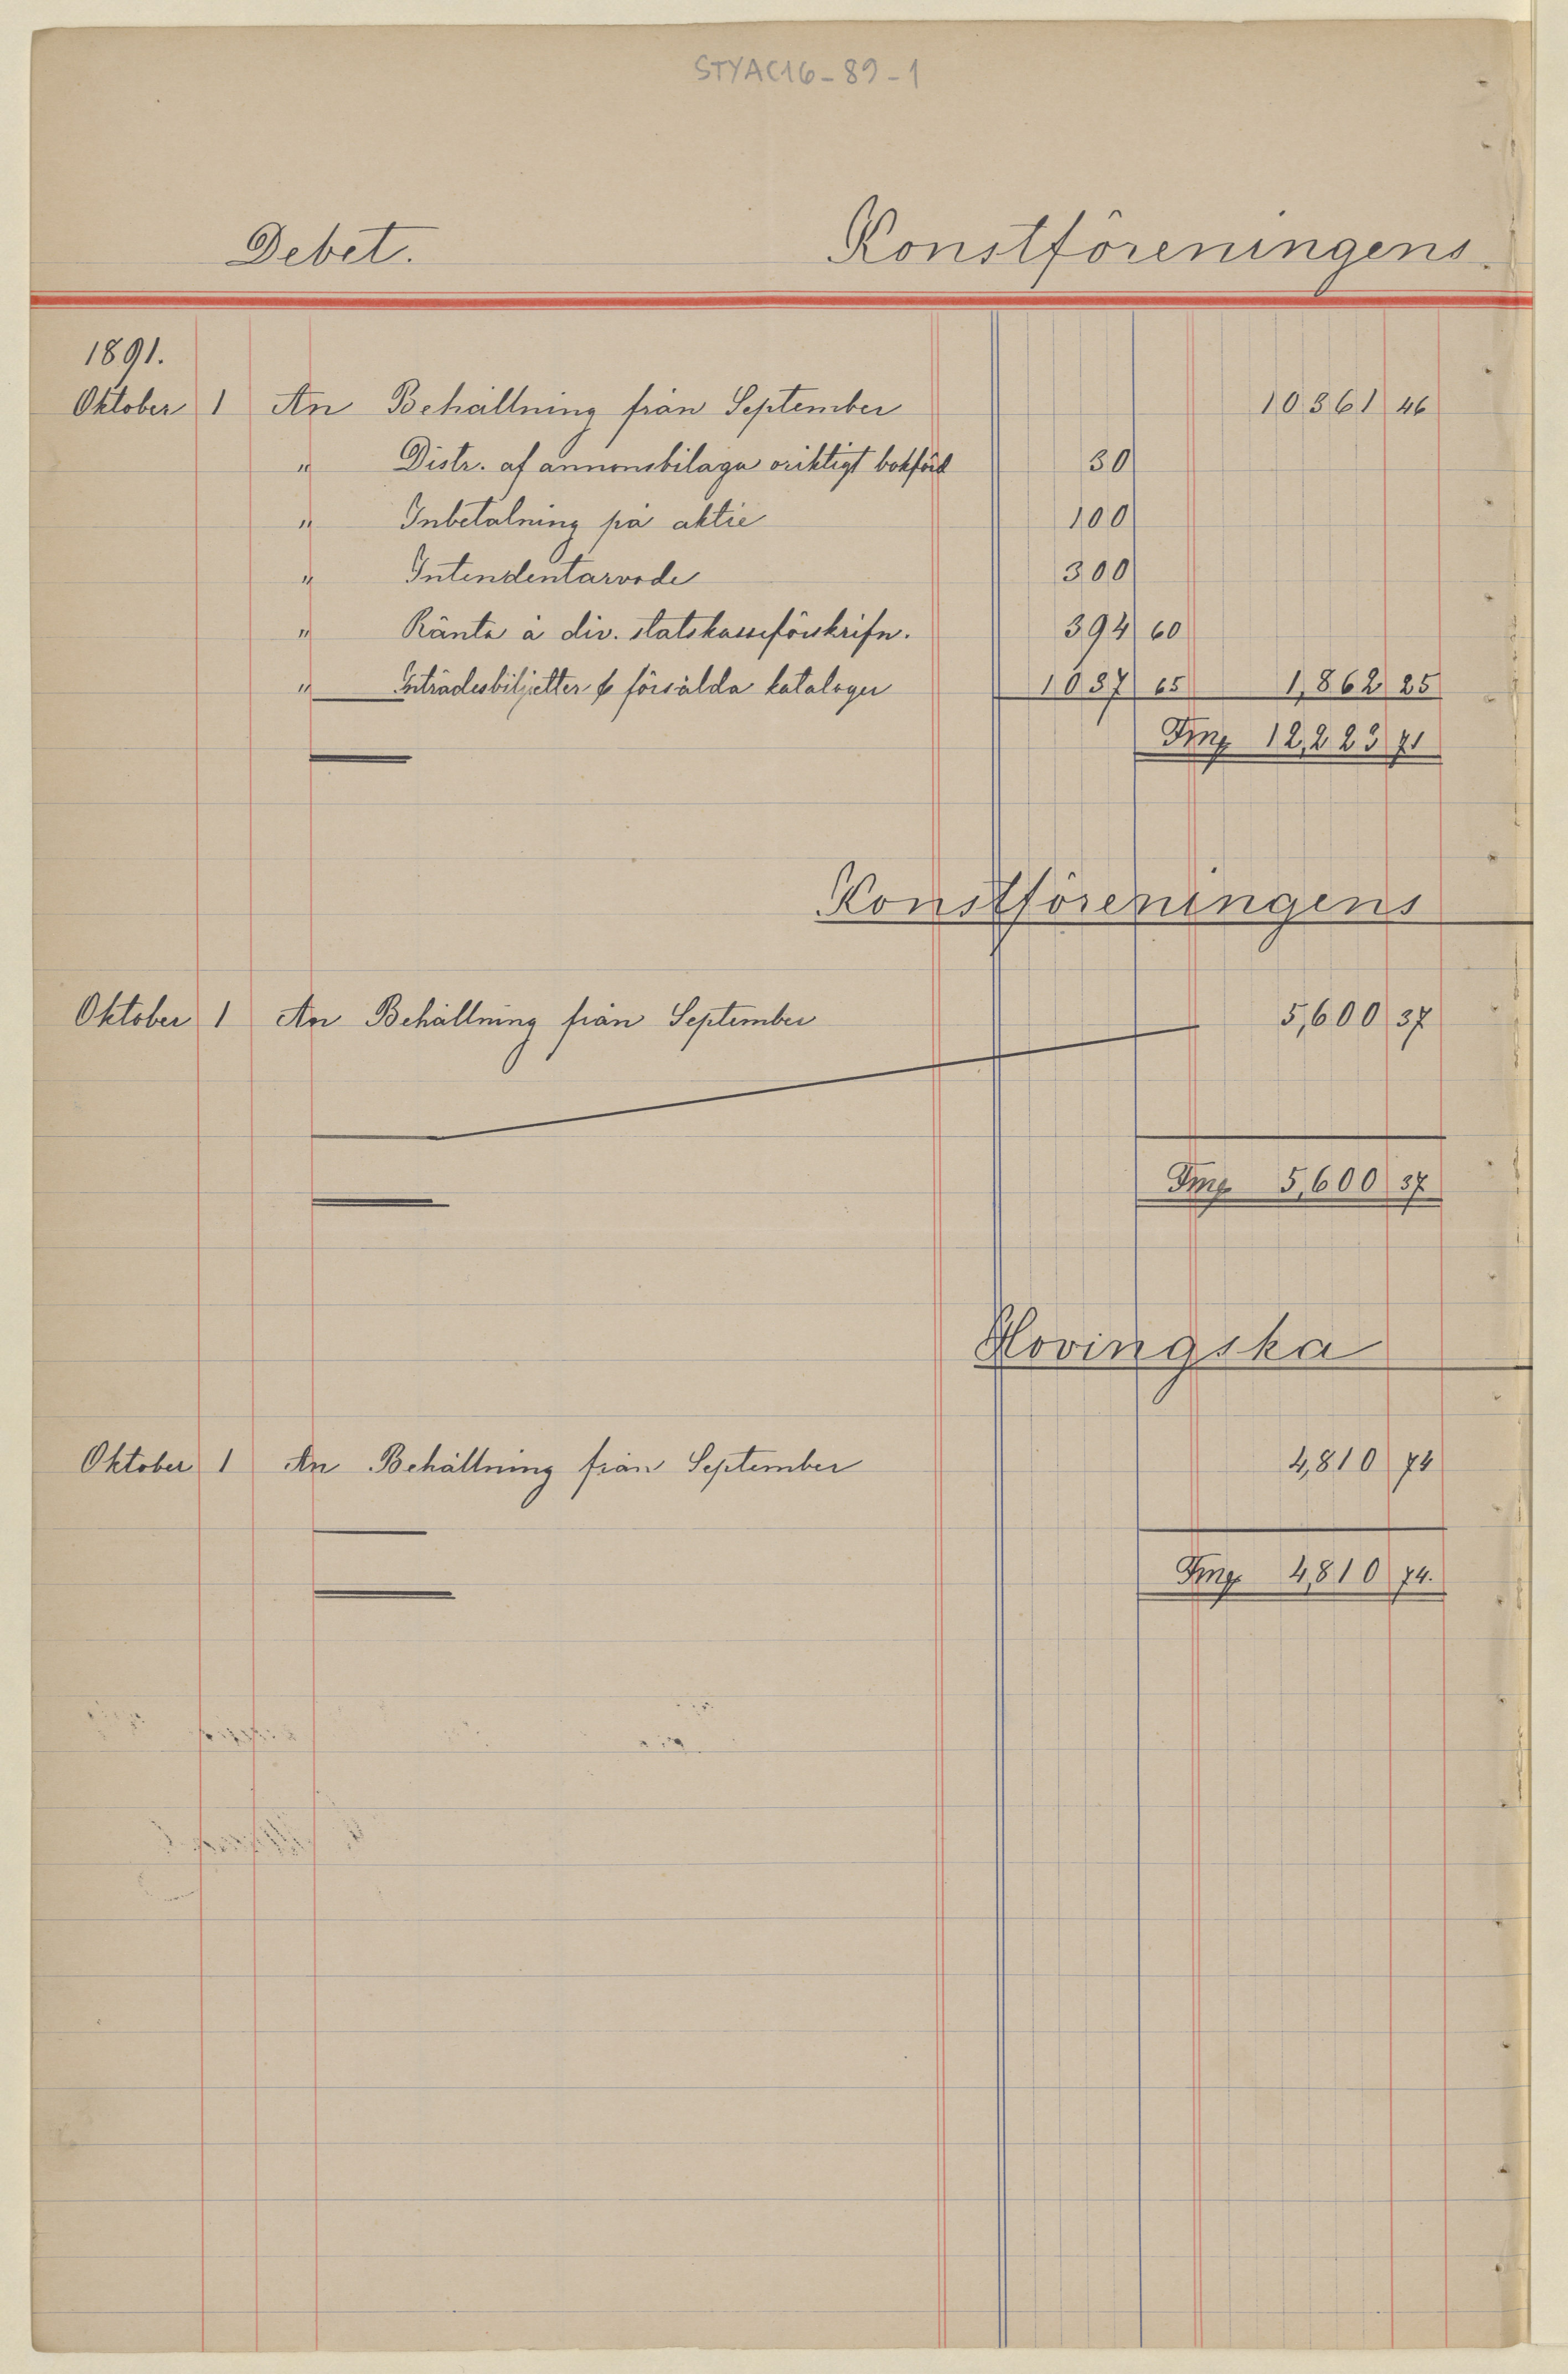 STYAC16-89-1
Debet. Konstföreningens
1891.
Oktober 1 An Behållning från September 10361 46
" Distr. af annonsbilaga oriktigt bokförd 30
" Inbetalning på aktie 100
" Intendentarvode 300
" Ränta å div. statskasseförskrifn. 394 60
" Inträdesbiljetter & försålda kataloger 1037 65 1,862 25
Fmg 12,223 71
Konstföreningens
Oktober 1 An Behållning från September 5,600 37
Fmg 5,600 37
Hovingska
Oktober 1 An Behållning från September 4,810 74
Fmg 4,810 74.